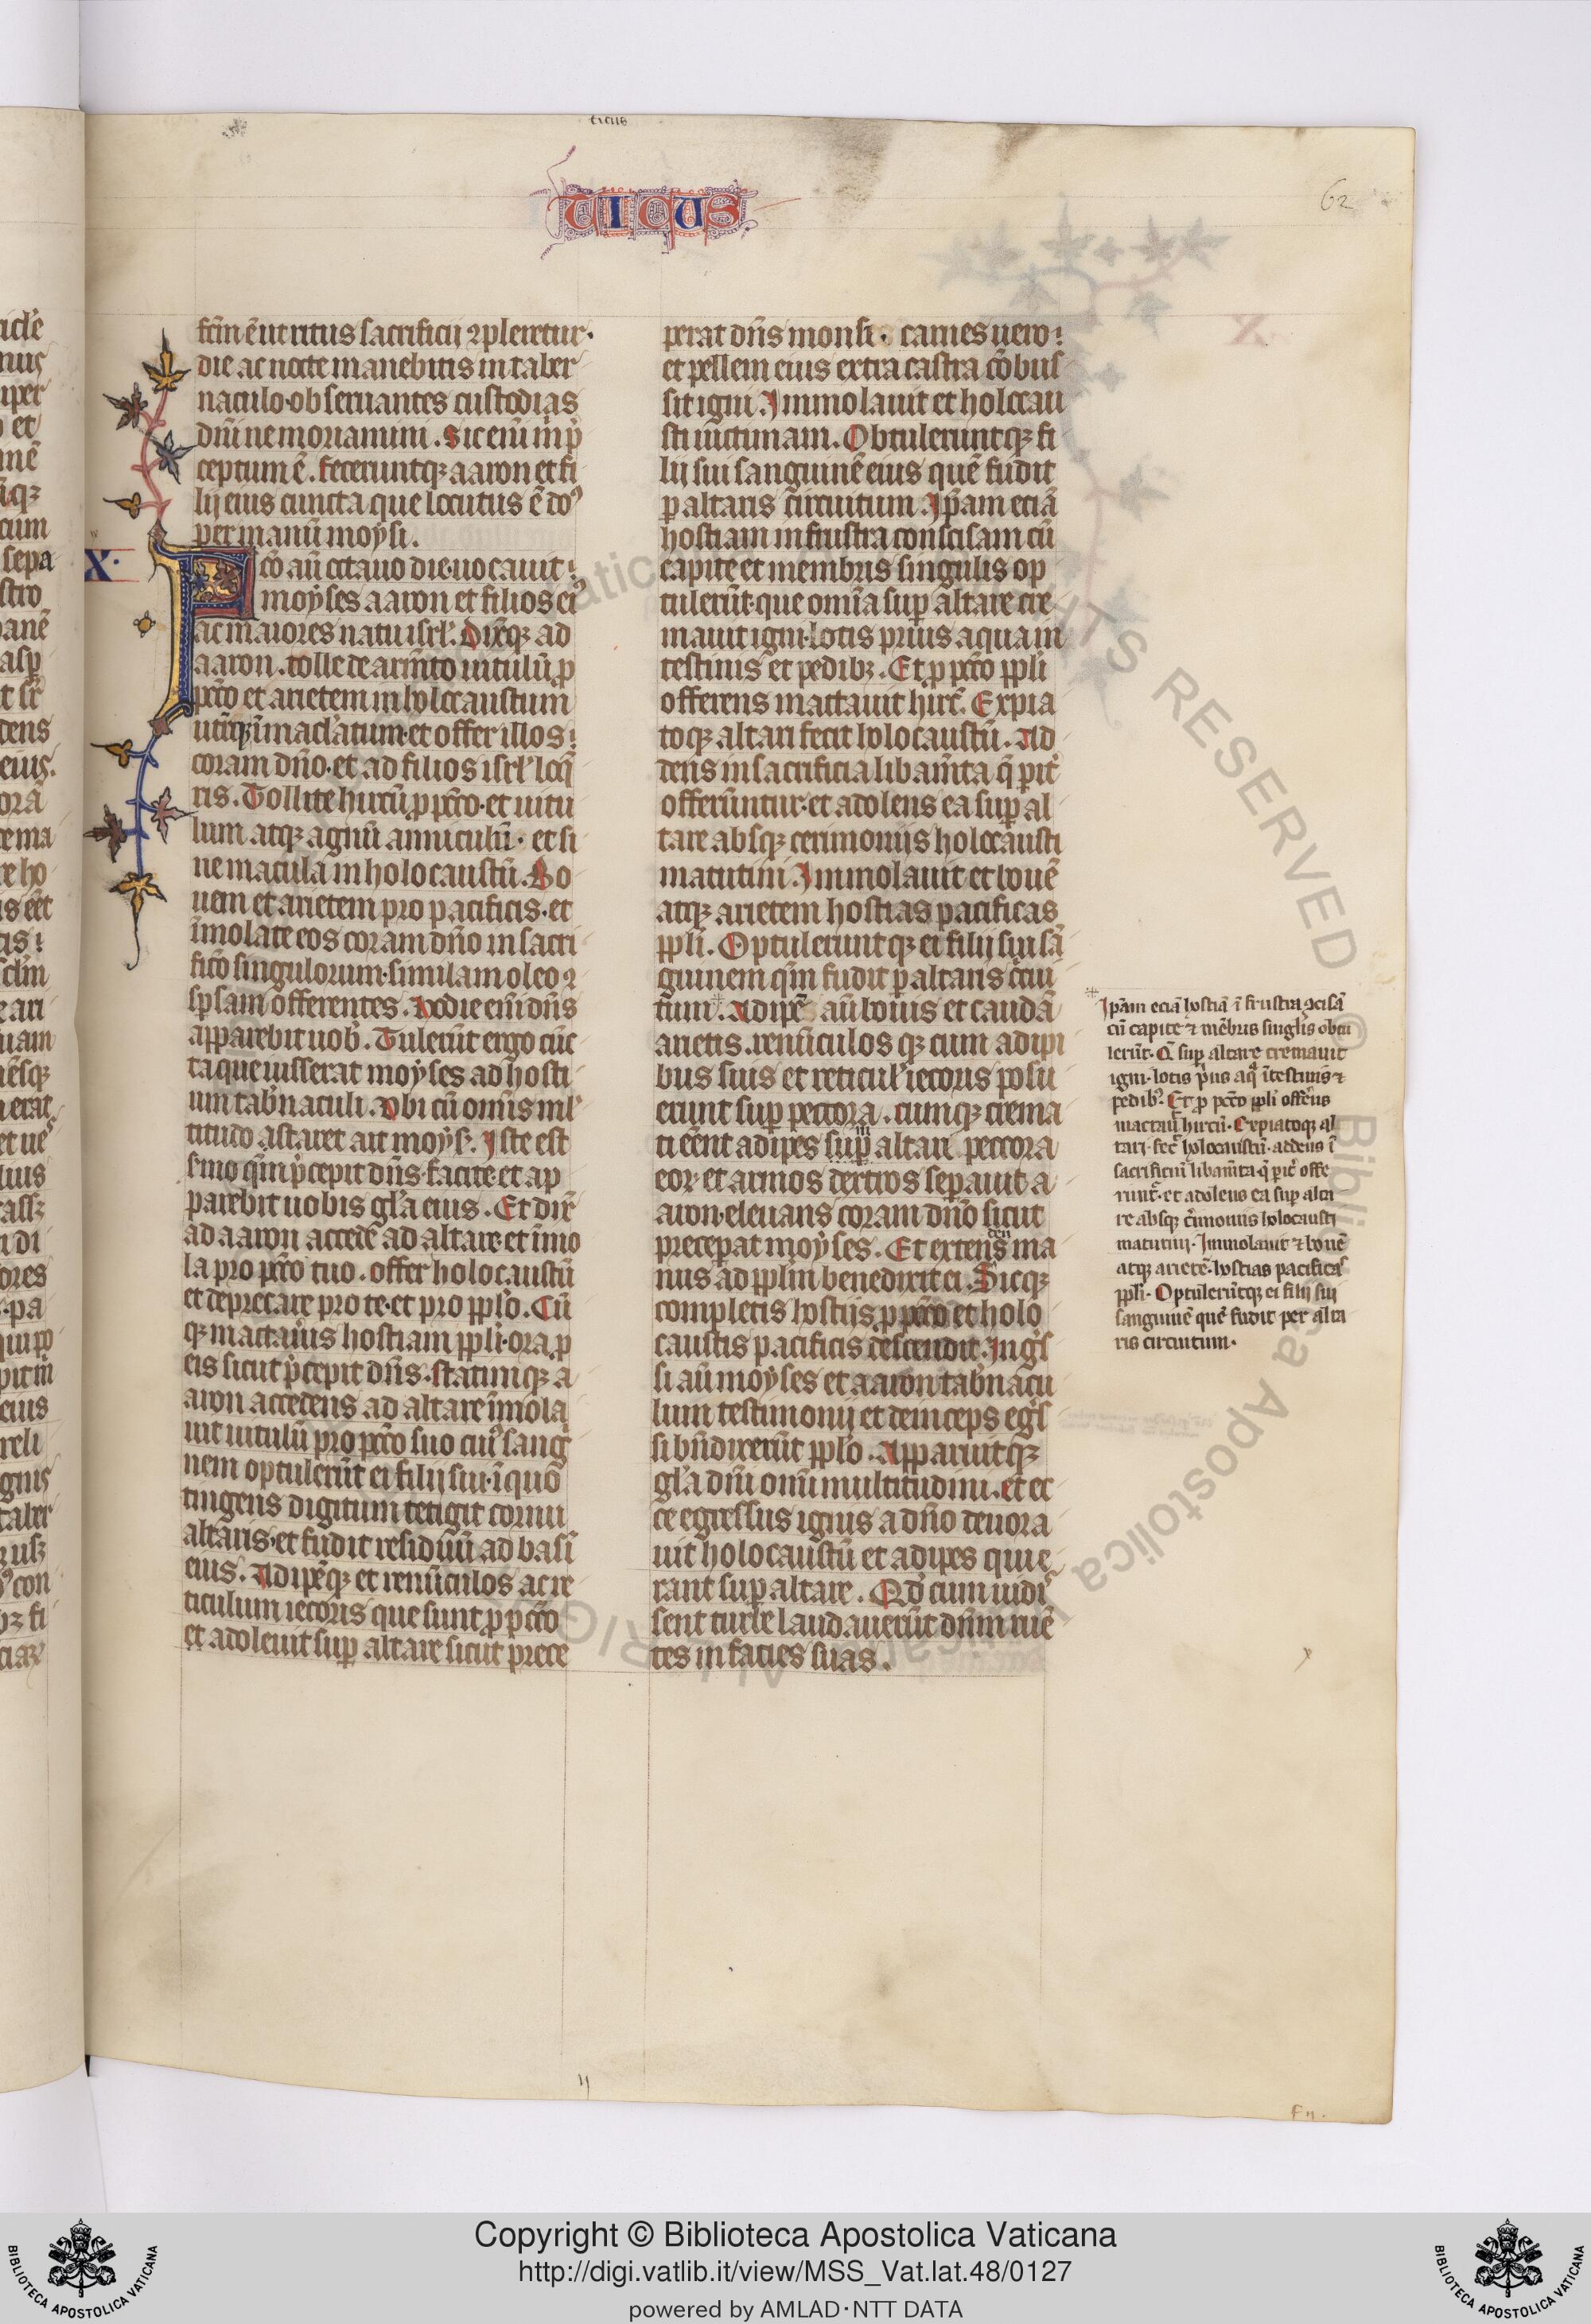 ticus
TIQUS
62
fctm ē ut ritus sacrificij ꝯpleretur·
die ac nocte manebitis in taber
naculo·obseruantes custodias
dn̄i ne moriamini. Sic enī m̄ p̄
ceptum ē. feceruntqꝫ aaron et fi
lij eius cuncta que locutus ē do᷒
per manū moysi.
X·
Fcō aū octauo die·uocauit
moyses aaron et filios ei᷒
ac maiores natu isrl̓. Dixitqꝫ ad
aaron. tolle de arm̄to uitulū ꝓ
pctō et arietem in holocaustum
utrūqꝫ īmacl̓atum·et offer illos
coram dn̄o·et ad filios isrl̓ loq̄
ris. Tollite hircū ꝓ pctō·et uitu
lum atqꝫ agnū anniculū· et si
ne macula in holocaustū. Bo
uem et arietem pro pacificis·et
īmolate eos coram dn̄o in sacri
ficō singulorum·similam oleo ꝯ
spsam offerentes. Hodie enī dn̄s
apparebit uob̓. Tulerūt ergo cūc
ta que iusserat moyses ad hosti
um tab̓naculi. Vbi cū omīs ml̓
titudo astaret ait moys̓. Iste est
smo qm̄ p̄cepit dn̄s·facite·et ap
parebit uobis gl̓a eius. Et dix̄
ad aaron accede ad altare·et īmo
la pro pctō tuo. offer holocaustū
et deprecare pro te·et pro ppl̓o. Cū
qꝫ mactau̓is hostiam ppl̓i·ora ꝓ
eis sicut p̄cepit dn̄s. statimqꝫ a
aron accedens ad altare īmola
uit uitulū pro pctō suo cui᷒ sang̓
nem optulerūt ei filij sui·ī quo
tingens digitum tetigit cornu
altaris·et fudit residuū ad basī
eius. Adipēqꝫ et renūculos ac re
ticulum iecoris que sunt ꝓ pctō
et adoleuit suꝑ altare sicut prece
perat dn̄s moysi· carnes uero
et pellem eius extra castra cōbus
sit igni. Immolauit et holocau
sti uictimam. Obtuleruntqꝫ fi
lij sui sanguinē eius quē fudit
ꝑ altaris circuitum. Ip̄am eciā
hostiam in frustra conscisam cū
capite et membris singulis op
tulerūt·que omīa suꝑ altare cre
mauit igni·lotis prius aqua in
testinis et pedibꝫ. Et ꝓ pctō ppl̓i
offerens mactauit hirc̄. Expia
toqꝫ altari fecit holocaustū. Ad
dens in sacrificia libam̄ta q̄ pit̓
offerūntur·et adolens ea suꝑ al
tare absqꝫ cerimonijs holocausti
matutini. Immolauit et bouē
atqꝫ arietem hostias pacificas
ppl̓i. Optuleruntqꝫ ei filij sui sā
guinem qm̄ fudit ꝑ altaris c̄cui
tum. Adipē aū bouis et caudā
arietis. renūculos qꝫ cum adipi
bus suis et reticul̓ iecoris posu
erunt suꝑ pectora. cumqꝫ crema
ti eēnt adipes suꝑ altari pectora
eor· et armos dextros separauit a
aron·eleuans coram dn̄o sicut
preceperat moyses. Et extens ma
den
nus ad ppl̓m benedixit ei. Sicqꝫ
completis hostijs ꝓ pctō et holo
caustis pacificis descendit. Ing̓s
si aū moyses et aaron tab̓nacu
lum testimonij et deinceps eg̓s
si bn̄dixerūt ppl̓o. Apparuitqꝫ
gl̓a dn̄i omī multitudini. et ec
ce egressus ignis a dn̄o deuora
uit holocaustū et adipes qui e
rant suꝑ altare. Qd̓ cum uidi᷒
sent turbe laudauerūt dn̄m ruē
tes in facies suas.
Ip̄am eciā hostiā ī frustra ꝯcisā
cū capite ⁊ mēbris singl̓is obtu
lerūt· Q̄ suꝑ altare cremauit
igni·lotis p̄us aq̄ ītestinis ⁊
pedib᷒. Et ꝓ pctō ppl̓i offerēs
mactauit hircū· Expiatoqꝫ al
tari·fec̄ holocaustū·addens ī
sacrificiū libam̄ta q̄ pit̓ offe
runt᷑·et adolens ea suꝑ alta
re absqꝫ c̄imonus holocausti
matutini· Immolauit ⁊ bouē
atqꝫ arietē·hostias pacificas
ppl̓i· Optulerūtqꝫ ei filij sui
sanguinē quē fudit per alta
ris circuitum·
ALL RIGHTS RESERVED © Biblioteca Apostolica Vaticana
Copyright © Biblioteca Apostolica Vaticana
http://digi.vatlib.it/view/MSS_Vat.lat.48/0127
powered by AMLAD·NTT DATA
BIBLIOTECA APOSTOLICA VATICANA
BIBLIOTECA APOSTOLICA VATICANA